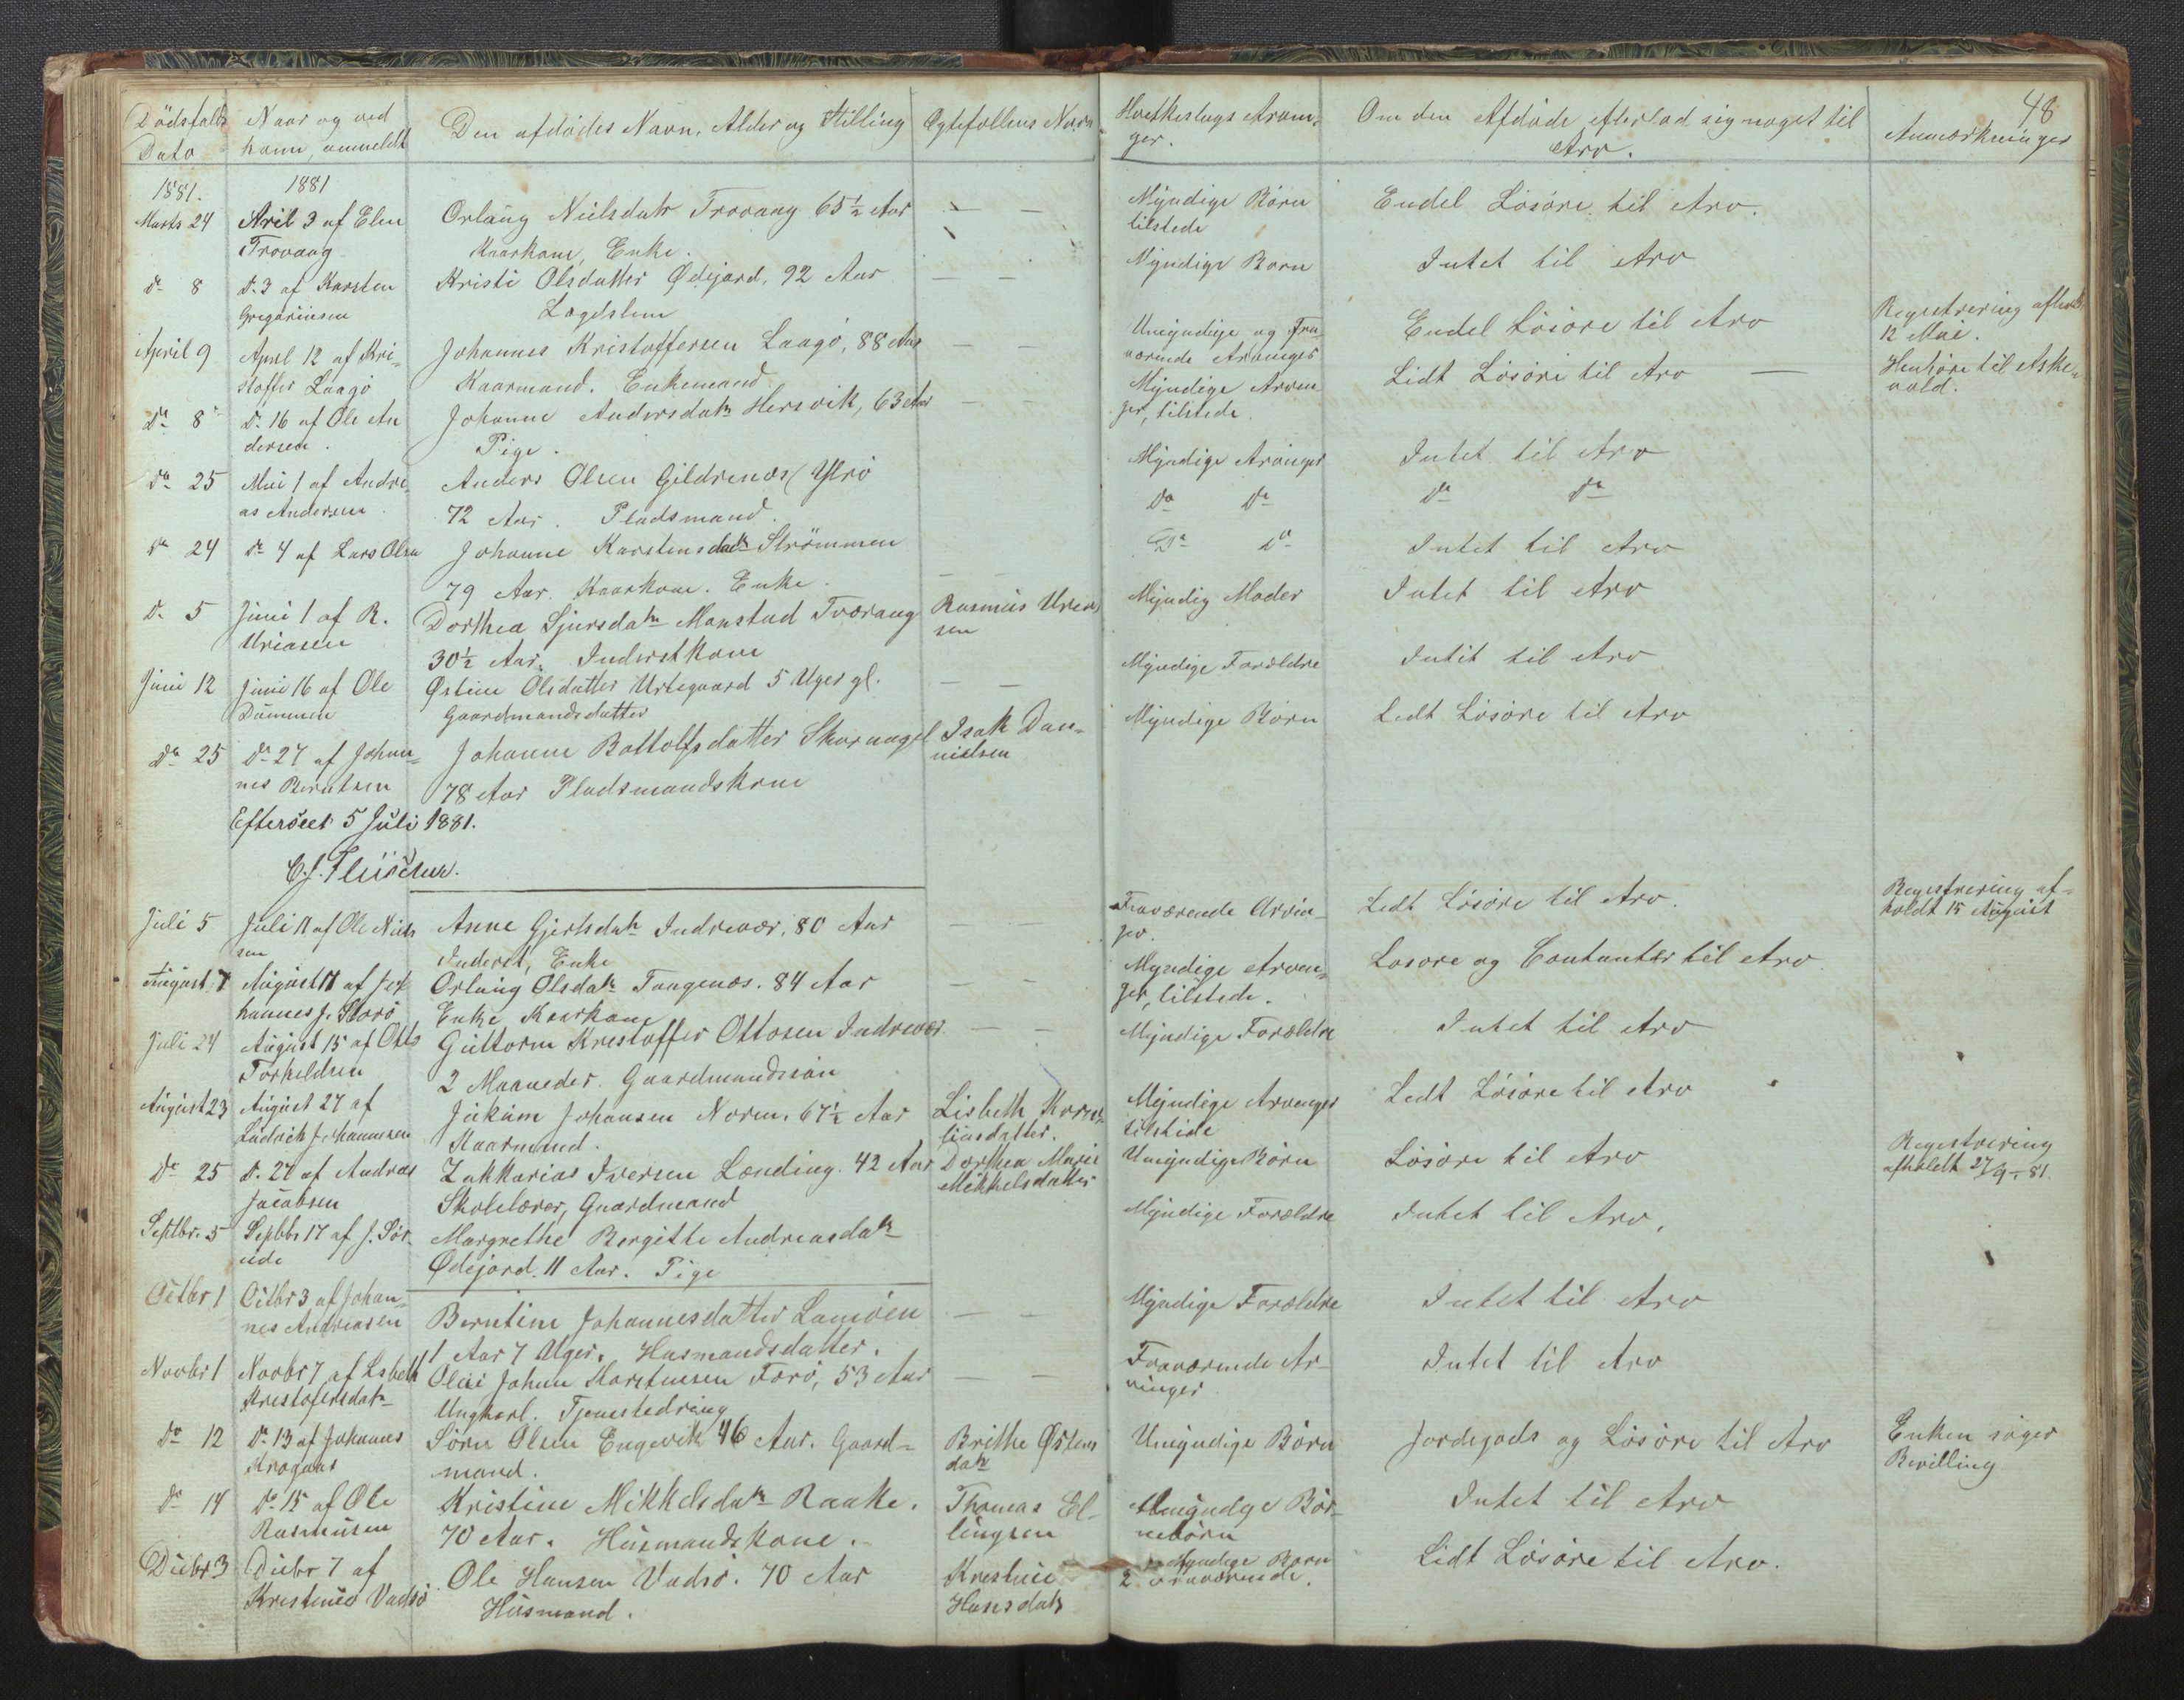 48
Dödsfalds Dato
Naar og ved hvem, anmeldt
Den afdödes Navn, Alder og Stilling
Egtefællens Navn
Hvilkeslags Arvinger.
Om den Afdöde efterlod sig noget til Arv.
Anmærkninger
1881.
1881
Marts 24
April 3 af Elen
Trovaag
Orlaug Nielsdatr Trovaag 65½ Aar
Kaarkone, Enke.
— —
Myndige Börn
tilstede
Endel Lösöre til Arv.
Da 8
Da 3 af Karsten
Gregoriusen
Kristi Olsdatter Ødejord, 92 Aar
Lægdslem
— —
Myndige Born
Intet til Arv
April 9
April 12 af Kri-
stoffer Laagö
Johannes Kristoffersen Laagö, 88 Aar
Kaarmand. Enkemand
— —
Umyndige og fra-
værende Arvinger
Endel Lösöre til Arv
Registrering afholdt
12 Mai.
Da 8
Da 16 af Ole An
dersen.
Johanne Andersdatr Hersvik, 63 Aar
Pige.
— —
Myndige Arvin
ger, tilstede.
Lidt Lösöre til Arv —
Henhöre til Aske-
vold.
Da 25
Mai 1 af Andre-
as Andersen.
Anders Olsen Gildrenæs (Ytrö
72 Aar. Pladsmand.
Myndige Arvinger
Intet til Arv
Da Da
Da Da
Da 24
Da 4 af Lars Olsen
Johanne Karstensdatr Strömmen
79 Aar. Kaarkone. Enke.
— —
Da Da
Intet til Arv
Da 5
Juni 1 af R.
Uriasen
Dorthea Sjursdatr Manstad Tværaag
30½ Aar. Inderstkone
Rasmus Urias
sen
Myndig Moder
Intet til Arv
Juni 12
Juni 16 af Ole
Dummen
Østine Olsdatter Urtegaard 5 Uger gl.
Gaardmandsdatter
— —
Myndige Forældre
Intet til Arv
Da 25
Da 27 af Johan-
nes Berntsen
Johanne Bottolfsdatter Skornagel
78 Aar Pladsmandskone
Isak Dan-
nielsen
Myndige Börn
Lidt Lösöre til Arv
Efterseet 5 Juli 1881.
Juli 5
Juli 11 af Ole Niels
sen
Anne Gjertsdatr Indrevær, 80 Aar
Inderst, Enke
— —
Fraværende Arvin-
ger.
Lidt Lösöre til Arv.
Registrering af-
holdt 15 August
August 7
August 11 af Jo-
hannes J. Storö
Orlaug Olsdatr Tangenæs. 84 Aar
Enke Kaarkone
— —
Myndige Arvin-
ger, tilstede.
Lösöre og Contanter til Arv
Juli 24
August 15 af Otto
Torkeldsen
Guttorm Kristoffer Ottosen Indrevær
2 Maaneder. Gaardmandssön
— —
Myndige Forældre
Intet til Arv
August 23
August 27 af
Ludvik Johannesen
Jakum Johansen Noren. 67½ Aar
Kaarmand.
Lisbeth Korne-
liusdatter.
Myndige Arvinger
tilstede
Lidt Lösöre til Arv
Da 25
Da 27 af Andreas
Jacobsen
Zakkarias Iversen Lending. 42 Aar
Skolelærer, Gaardmand
Dorthea Marie
Mikkelsdatter
Umyndige Börn
Lösöre til Arv
Registrering
afholdt 27/9-81.
Septbr. 5
Septbr 17 af J. Sör-
eide
Margrethe Bergitte Andreasdatr
Ødejord. 11 Aar. Pige
Myndige Forældre
Intet til Arv.
Octbr 1
Octbr 3 af Johan-
nes Andreasen
Berntine Johannesdatter Lamöen
1 Aar 7 Uger. Husmandsdatter.
— —
Myndige Forældre
Intet til Arv
Novbr 1
Novbr 7 af Lsbeth
Kristofersdatr
Olai Johan Karstensen Færö, 53 Aar
Ungkarl. Tjenestedreng
— —
Fraværende Ar-
vinger
Intet til Arv
Da 12
Da 13 af Johannes
Krogaas
Sörn Olsen Engevik 46 Aar. Gaard-
mand.
Brithe Østens
datr
Umyndige Börn
Jordegods og Lösöre til Arv
Enken söger
Bevilling
Da 14
Da 15 af Ole
Rasmusen
Kristine Mikkelsdatr Raake.
70 Aar. Husmandskone.
Thomas El-
lingsen
Umyndige Bör-
nebörn
Intet til Arv
Decbr 3
Decbr 7 af
Kristine Vadsö
Ole Hansen Vadsö. 70 Aar
Husmand.
Kristine
Hansdatr
Myndige Börn
2 fraværende.
Lidt Lösöre til Arv.